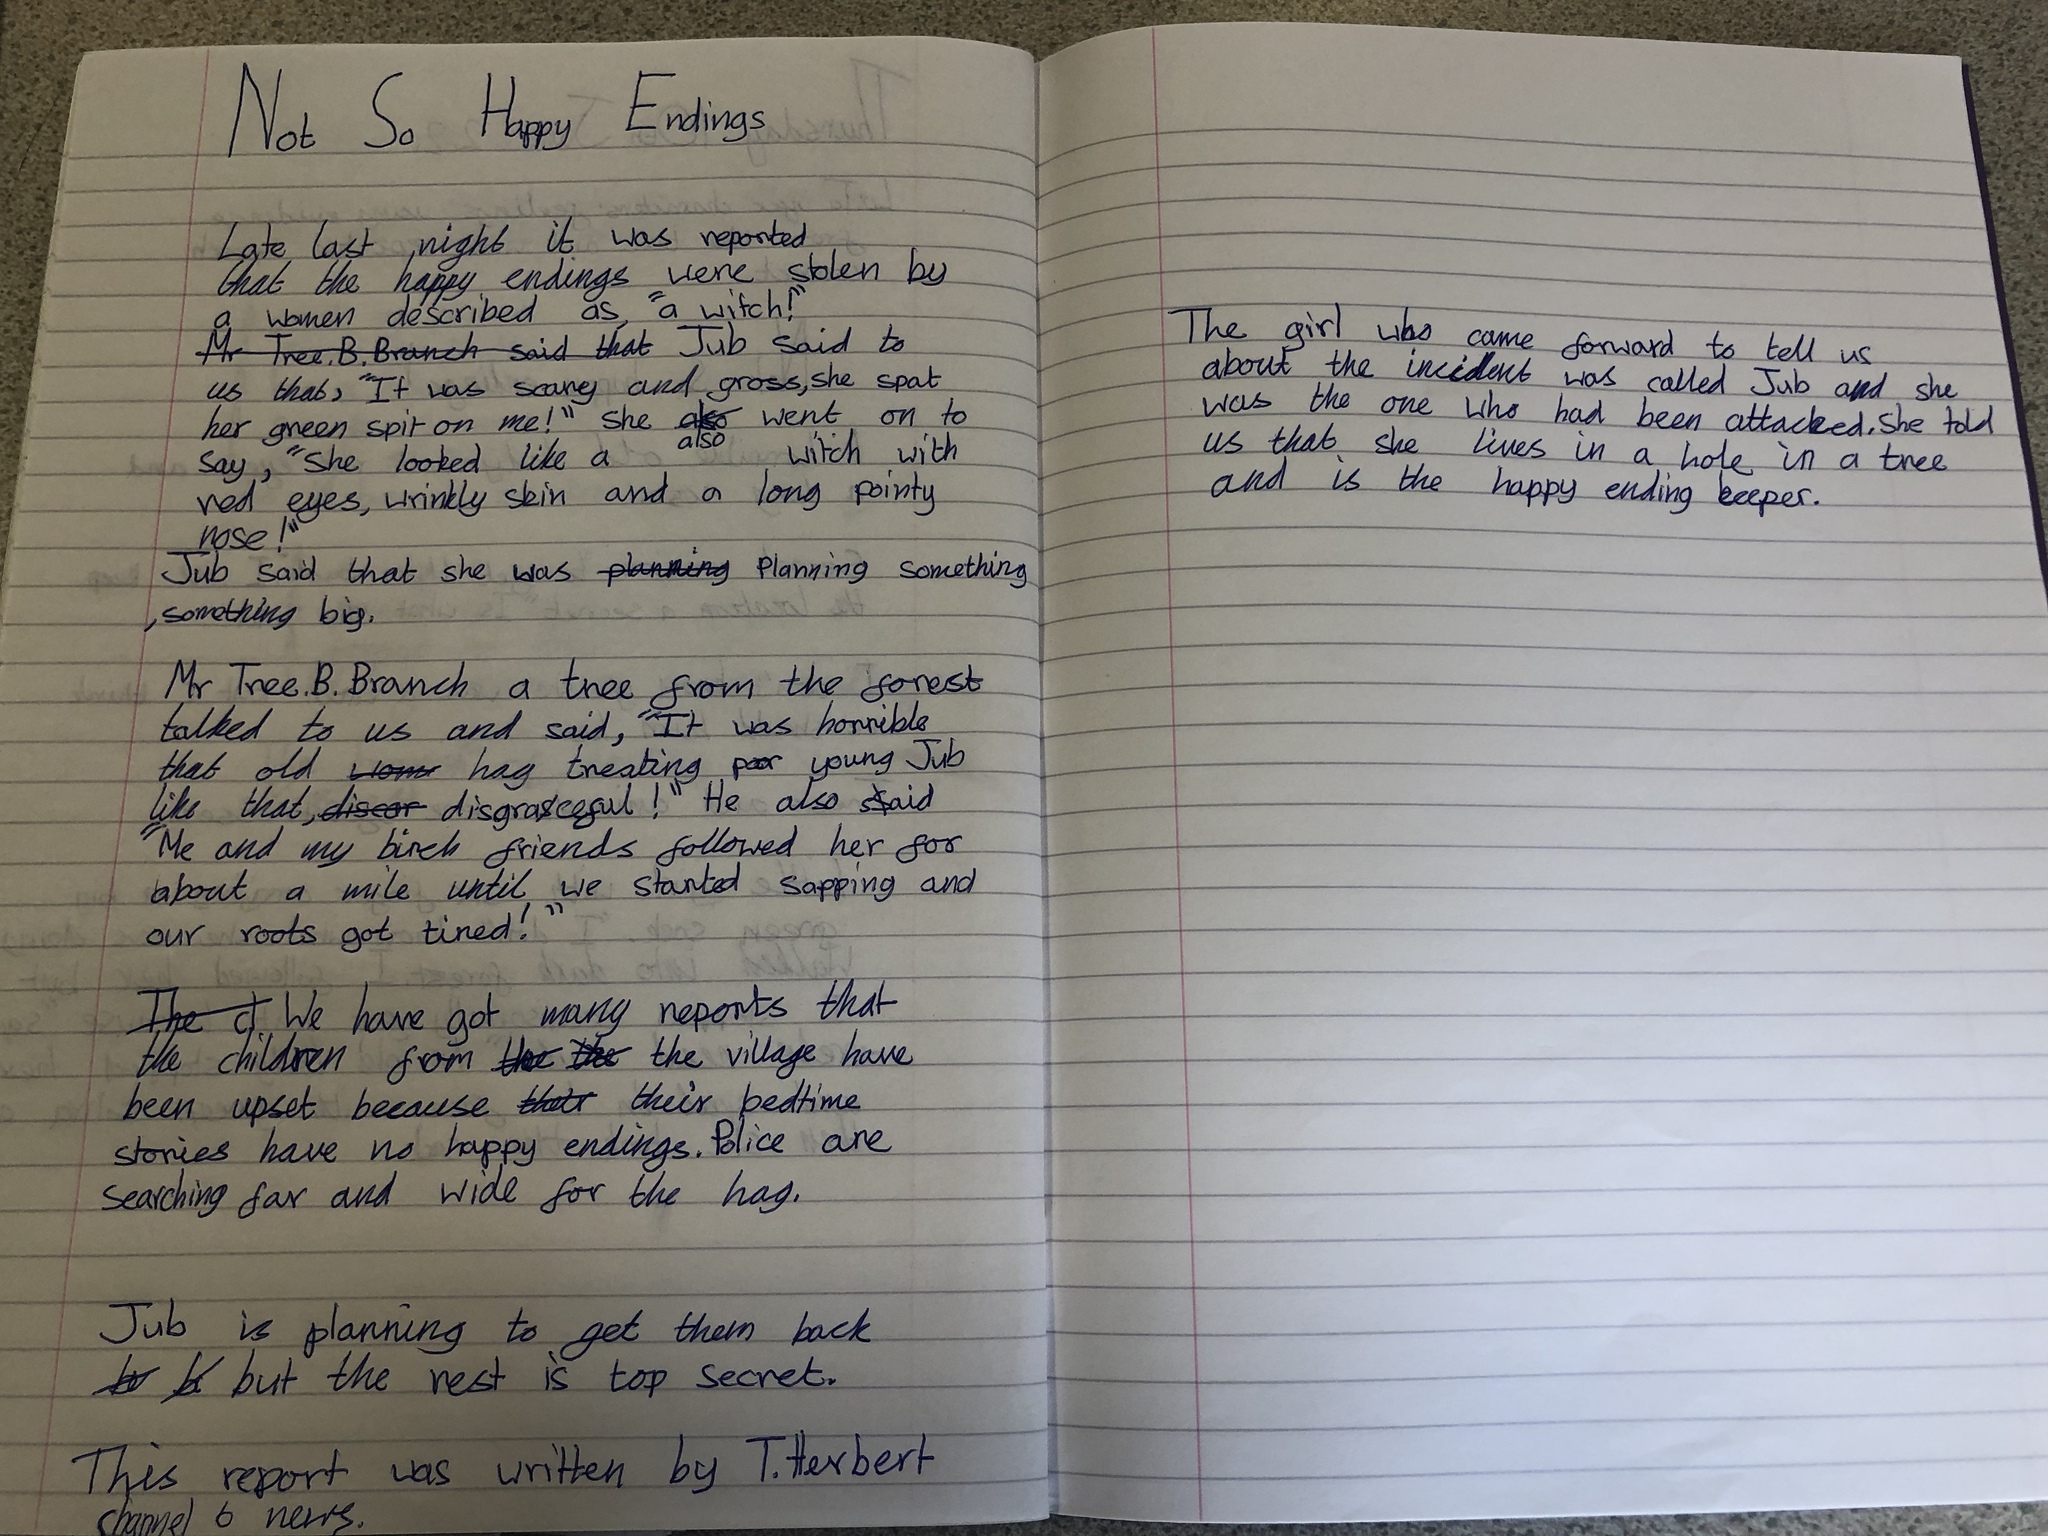 Not So Happy Endings
Late last night it was reported
that the happy endings were stolen by
a women described as, "a witch!"
Mr Tree.B.Branch said that Jub said to
us that, "It was scary and gross, she spat
her green spit on me!" She also went on to
also
say, "She looked like a witch with
red eyes, wrinkly skin and a long pointy
nose!"
Jub said that she was planning planning something
, something big.
Mr Tree.B.Branch a tree from the forest
talked to us and said, "It was horrible
that old hag treating poor young Jub
like that, disgraceful!" He also said
"Me and my birch friends followed her for
about a mile until we started sapping and
our roots got tired!"
The c We have got many reports that
the children from the the the village have
been upset because their their bedtime
stories have no happy endings. Police are
searching far and wide for the hag.
Jub is planning to get them back
but the rest is top secret.
This report was written by T.Herbert
channel 6 news.
The girl who came forward to tell us
about the incident was called Jub and she
was the one who had been attacked. She told
us that she lives in a hole in a tree
and is the happy ending keeper.